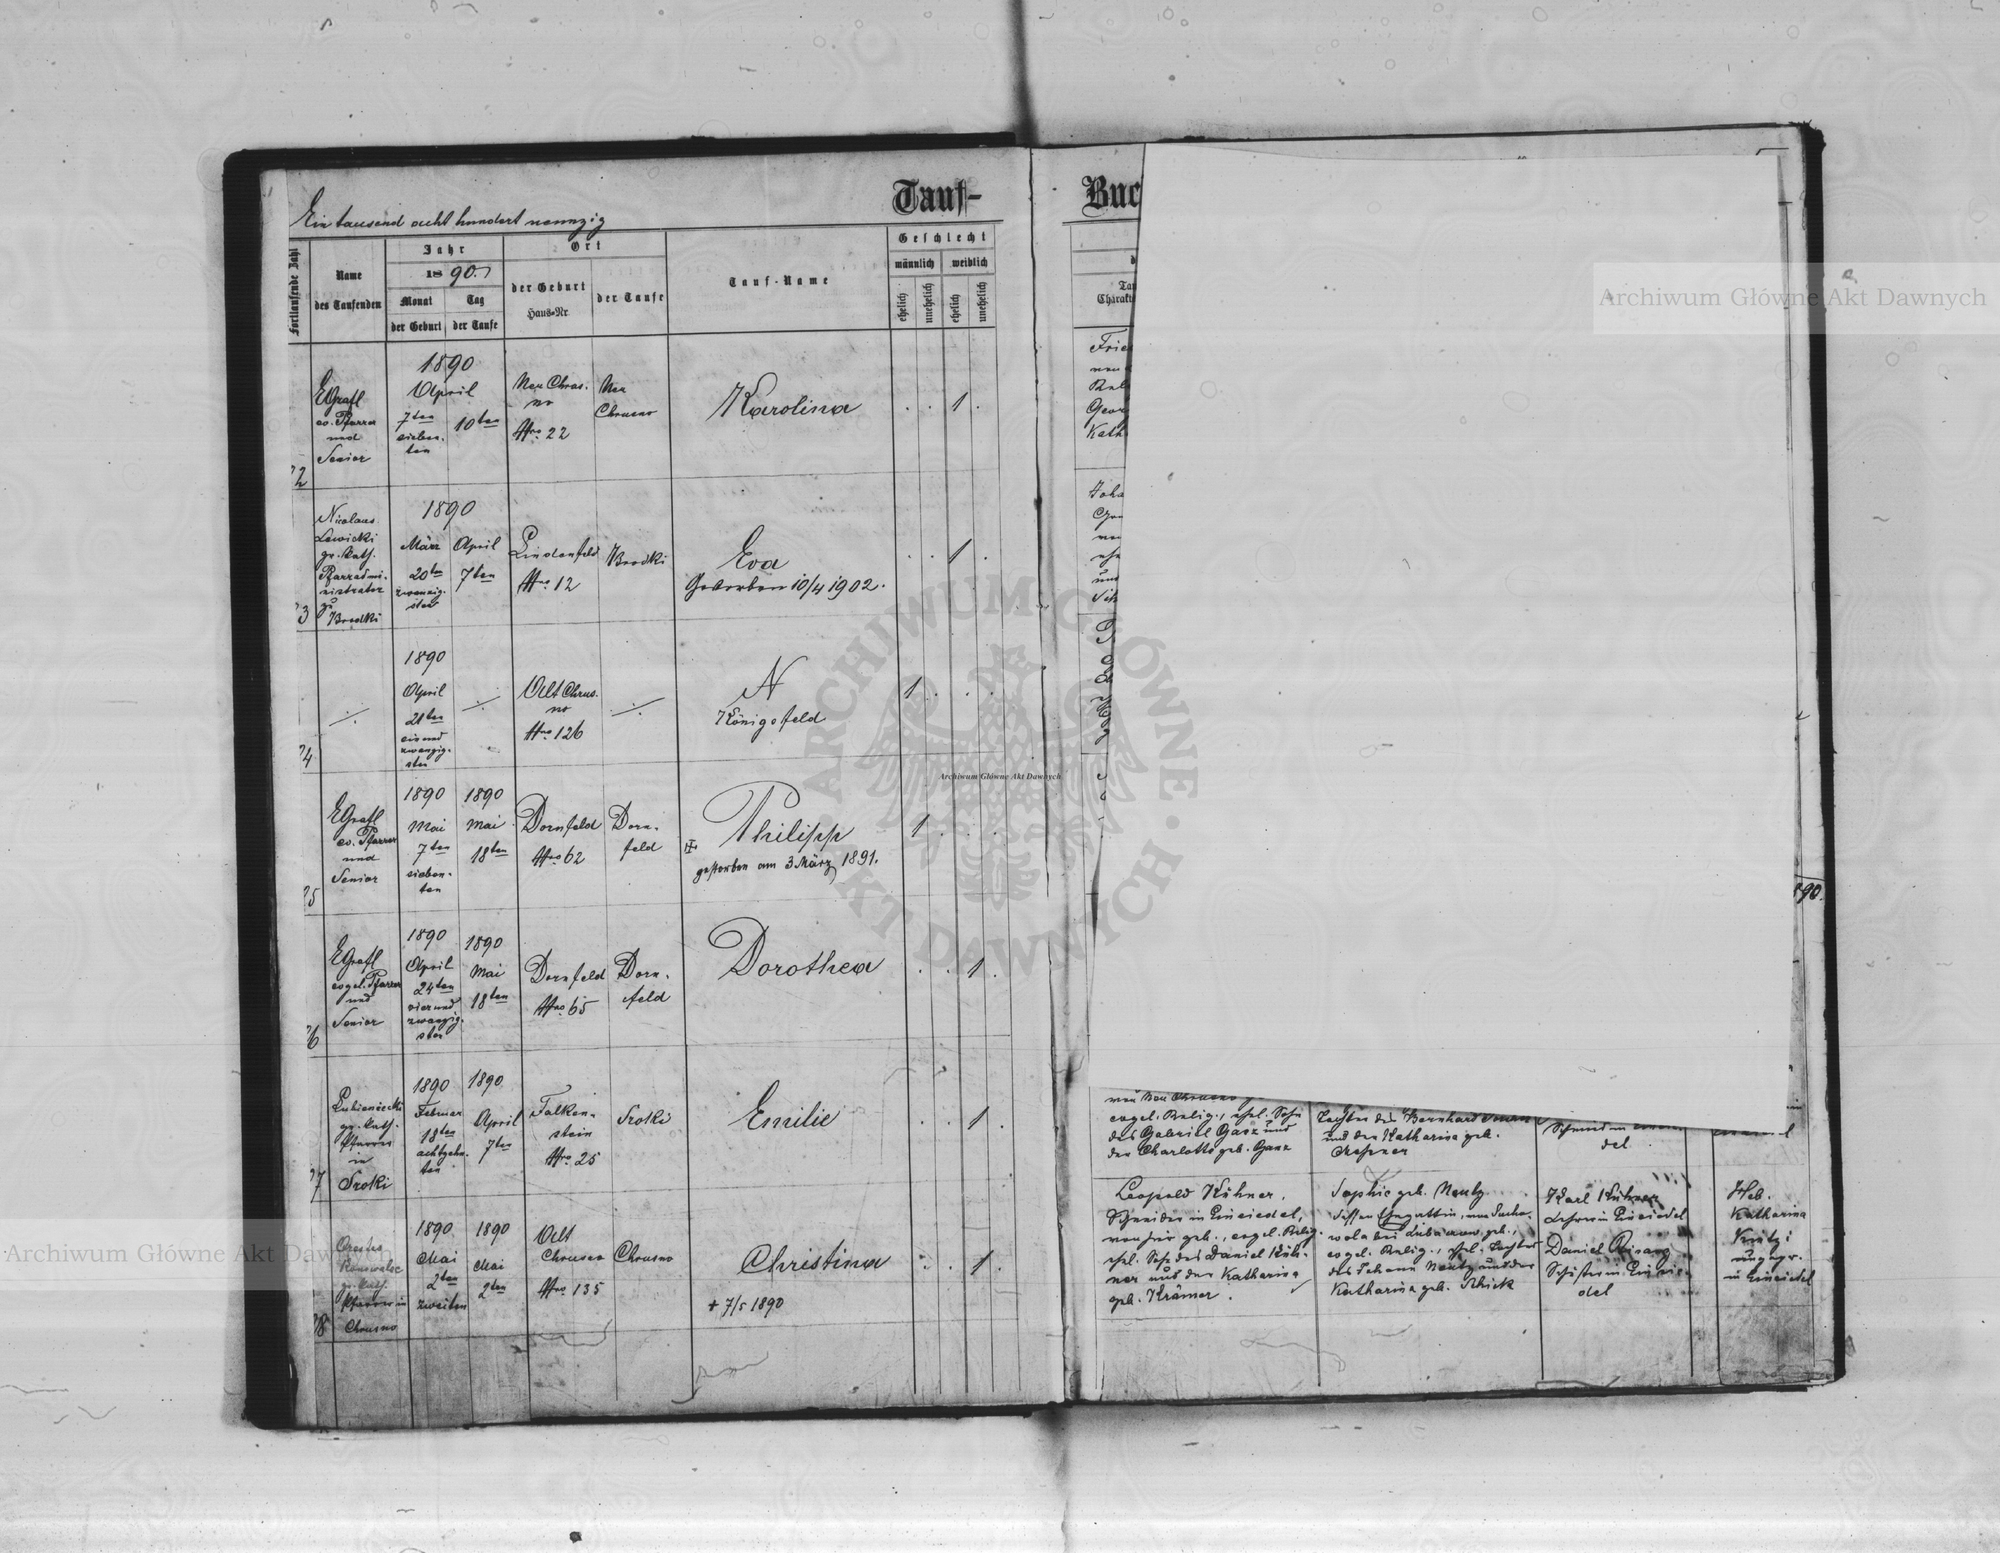 Tauf-
Buc
Ein tausend acht hundert neunzig
Fortlaufende Zahl
Name
des Taufenden
Jahr
1890.
Monat
der Geburt
Tag
der Taufe
Ort
der Geburt
Haus-Nr.
der Taufe
Tauf-Name
Geschlecht
männlich
weiblich
ehelich
unehelich
ehelich
unehelich
EGrafl
ev. Pfarrer
und
Senior
1890
April
7ten
sieben-
ten
10ten
Neu Chrus-
no
Nro 22
Neu
Chrusno
Karolina
1
2
Nicolaus
Lewicki
gr. kath.
Pfarradmi-
nistrator
zu
Brodki
1890
März
20ten
zwanzig-
sten
April
7ten
Lindenfeld
Nro 12
Brodki
Eva
Gestorben 10/4 1902.
1
3
1890
April
21ten
ein und
zwanzig-
sten
Alt Chrus-
no
Nro 126
N
Königsfeld
1
4
EGrafl
ev. Pfarrer
und
Senior
1890
Mai
7ten
sieben-
ten
1890
Mai
18ten
Dornfeld
Nro 62
Dorn-
feld
Philipp
gestorben am 3 März 1891.
1
5
EGrafl
evgel. Pfarrer
und
Senior
1890
April
24ten
vier und
zwanzig-
sten
1890
Mai
18ten
Dornfeld
Nro 65
Dorn-
feld
Dorothea
1
6
gr. kath.
Pfarrer
in
Sroki
1890
Februar
18ten
achtzehn-
ten
1890
April
7ten
Falken-
stein
Nro 25
Sroki
Emilie
1
7
Orestes
gr. kath.
Pfarrer in
Chrusno
1890
Mai
2ten
zweiten
1890
Mai
2ten
Alt
Chrusno
Nro 135
Chrusno
Christina
+ 7/5 1890
1
8
Georg
Kath
890.
evgel. Relig., ehel. Sohn
des Gabriel Ganz und
der Charlotte geb. Ganz
Tochter des Bernhard
und der Katharina geb.
Schmied in
del
Leopold Kühner,
Schneider in Einsiedel,
von hier geb., evgel. Relig.
ehel. Sohn des Daniel Küh-
ner und der Katharina
geb. Krämer.
Sophie geb. Neutz
dessen Ehegattin, von
wola bei Lubaczow geb.,
evgel. Relig., ehel. Tochter
des Johann Neutz und der
Katharina geb. Schick
Karl Kühner
Lehrer in Einsiedel
Daniel
Schuster in Einsie-
del
Heb.
Katharina
ungepr.
in Einsiedel
Archiwum Główne Akt Dawnych
Archiwum Główne Akt Dawnych
Archiwum Główne Akt Dawnych
ARCHIWUM GŁÓWNE AKT DAWNYCH